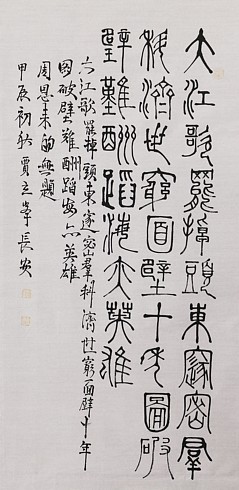 大江歌罷掉頭東邃密羣
科濟世窮面壁十年圖破
壁難酬蹈海亦英雄
大江歌罷掉頭東邃密羣科濟世窮面壁十年
圖破壁難酬蹈海亦英雄
周恩来的無題
甲辰初秋賈立長安